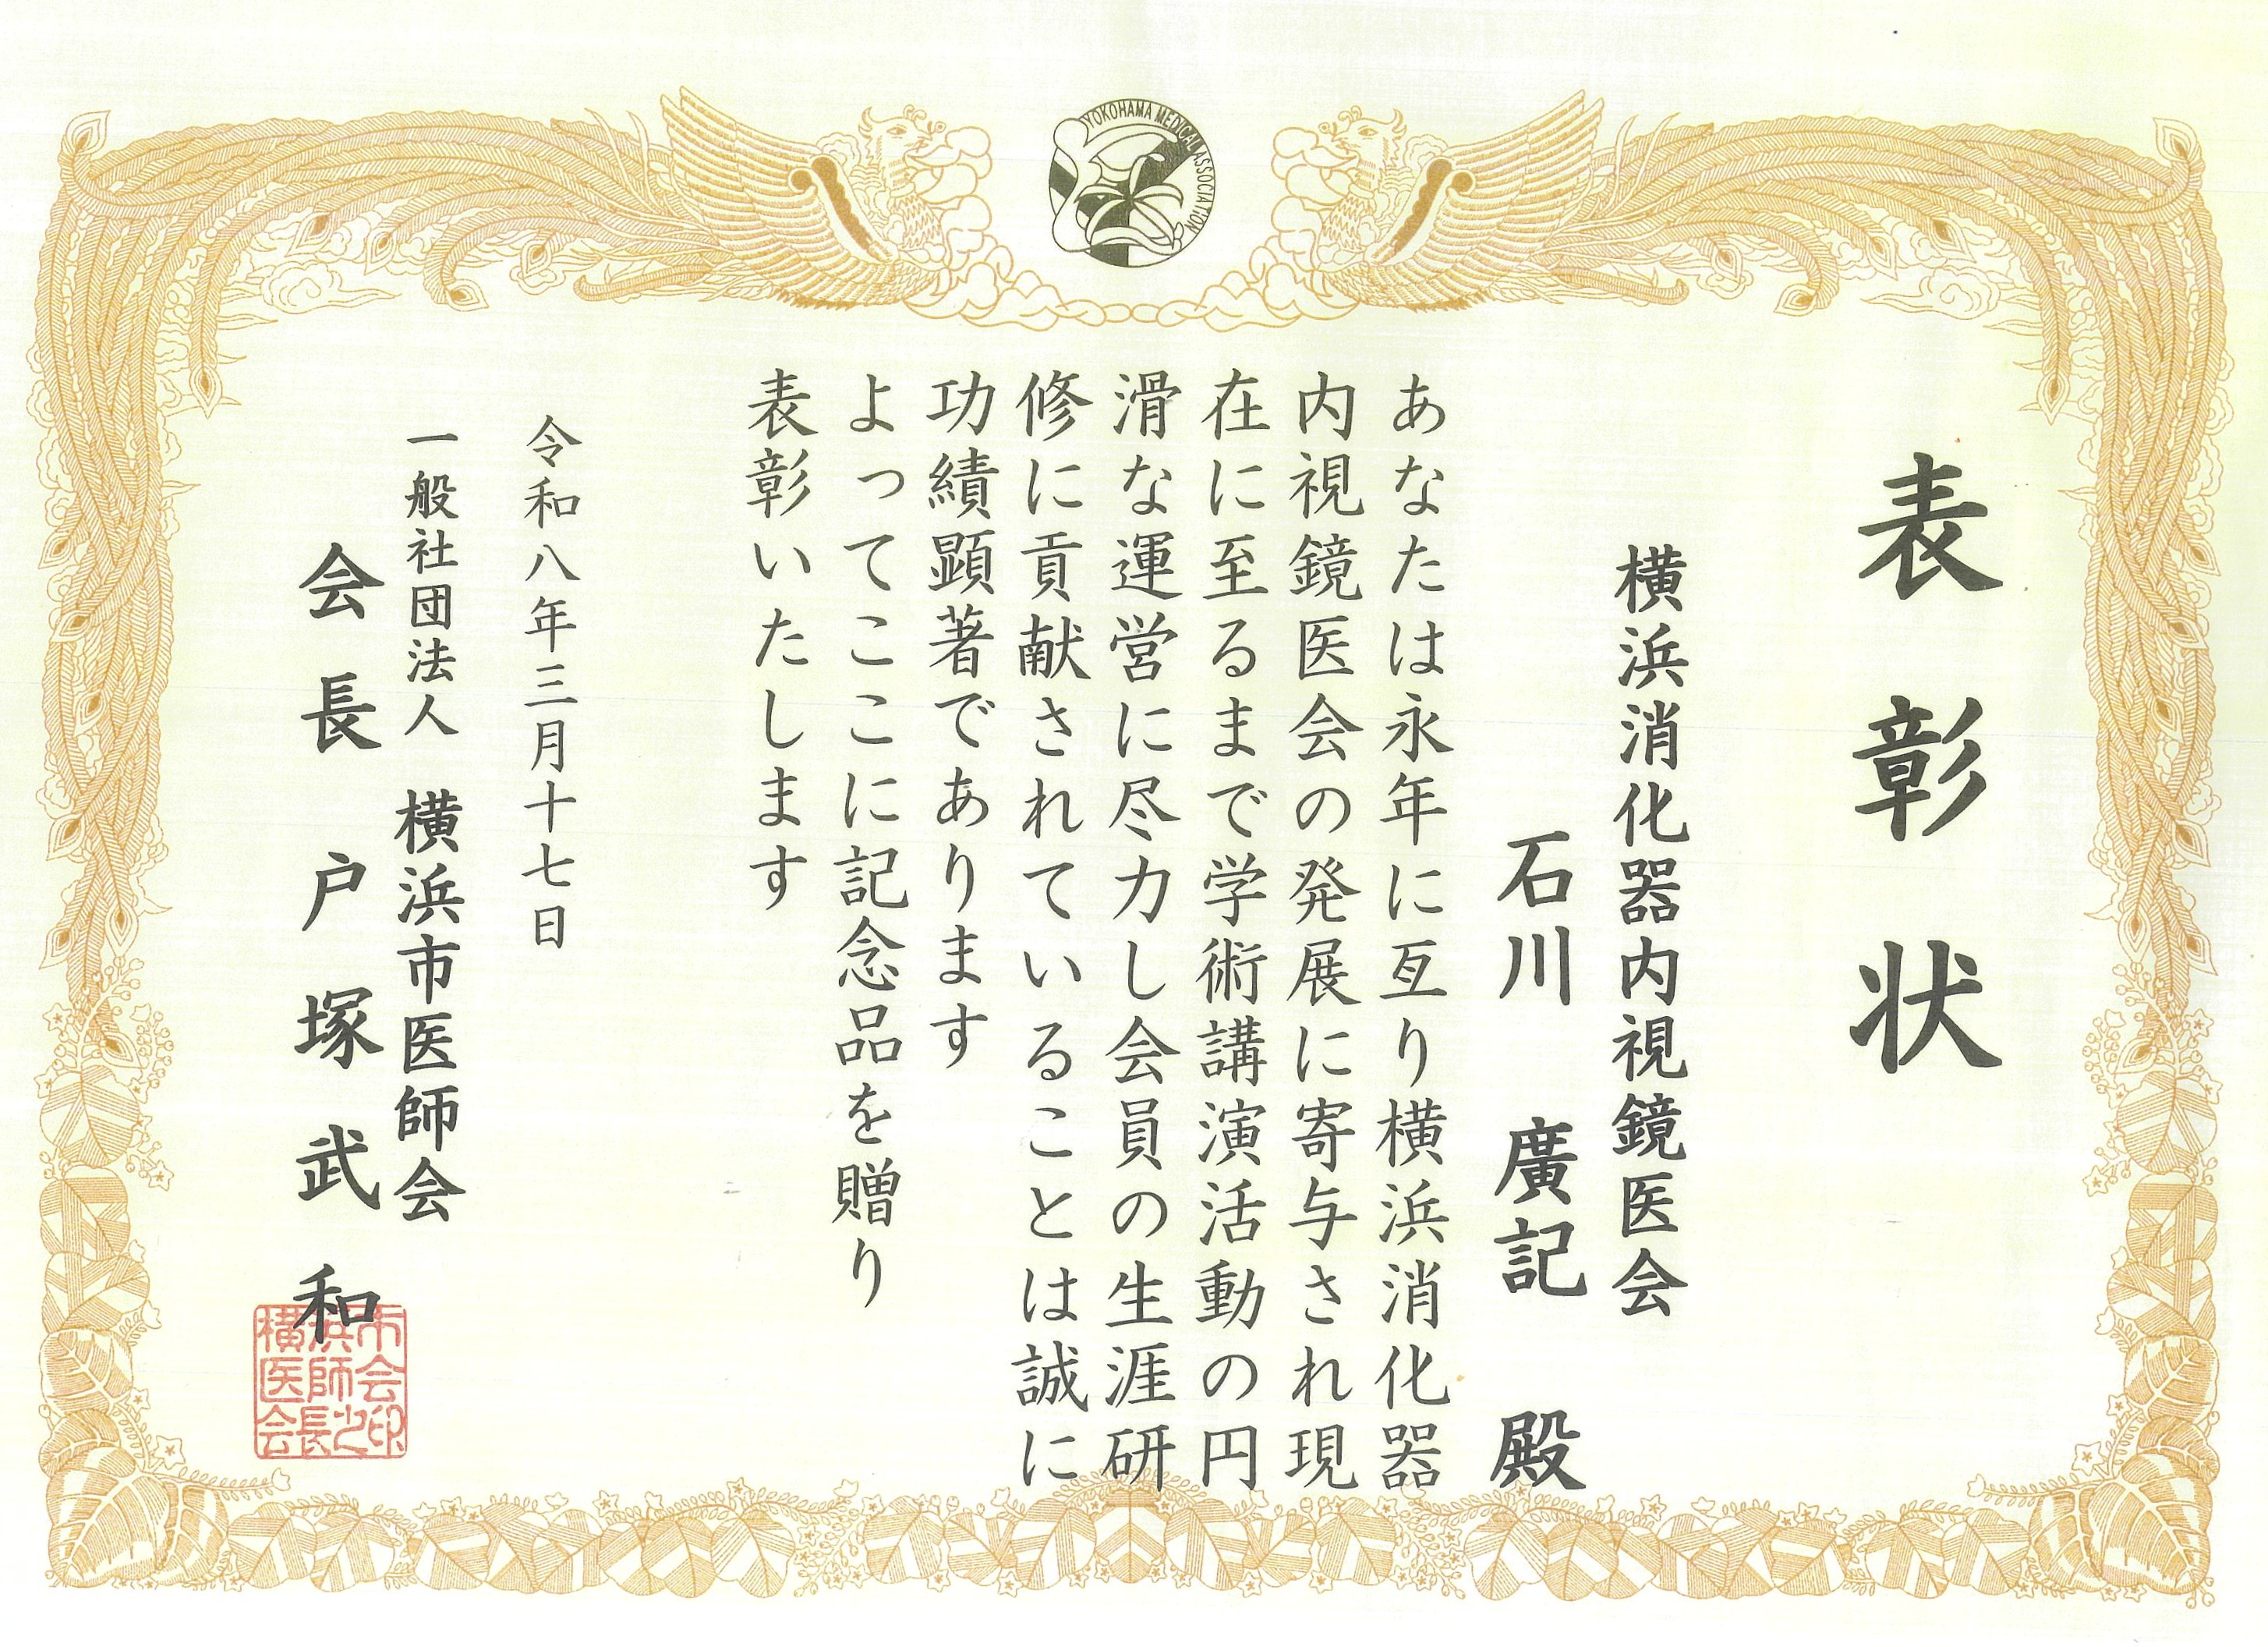 YOKOHAMA MEDICAL ASSOCIATION
表彰状
横浜消化器内視鏡医会
石川 廣記 殿
あなたは永年に亙り横浜消化器
内視鏡医会の発展に寄与され現
在に至るまで学術講演活動の円
滑な運営に尽力し会員の生涯研
修に貢献されていることは誠に
功績顕著であります
よってここに記念品を贈り
表彰いたします
令和八年三月十七日
一般社団法人 横浜市医師会
会長 戸塚武和
横浜市
医師会
会長之印